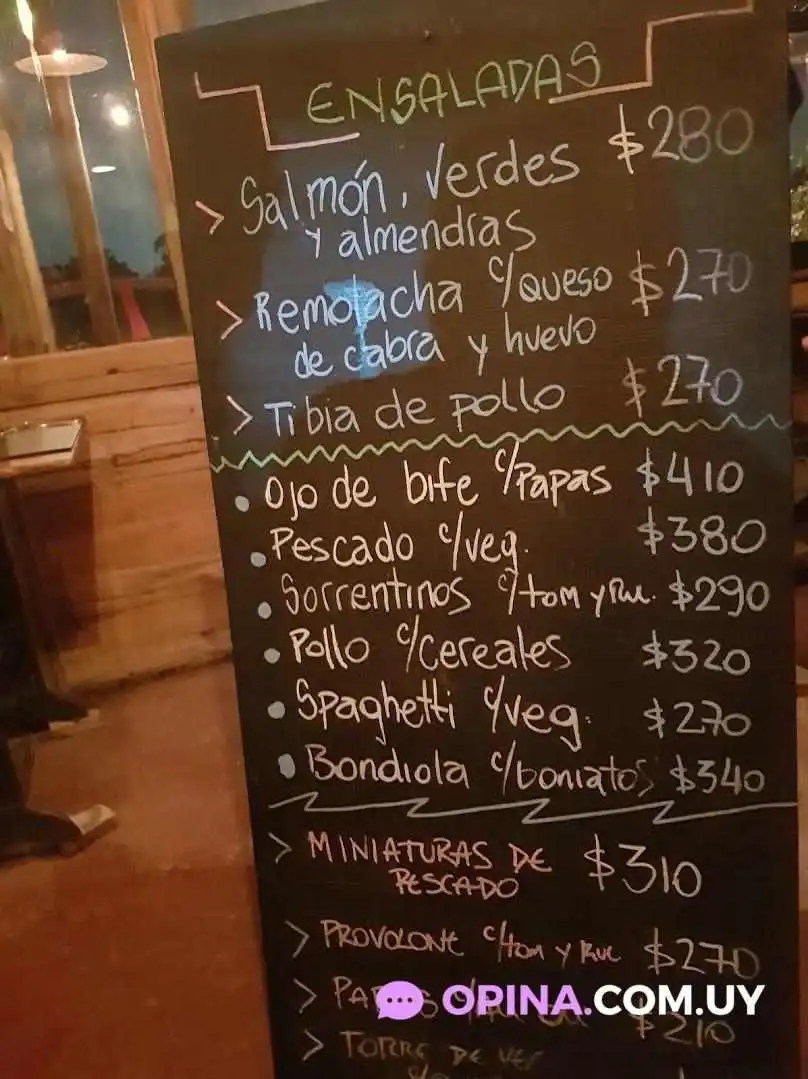 ENSALADAS
> Salmón, verdes $280
y almendras
> Remolacha c/queso $270
de cabra y huevo
> Tibia de pollo $270
• Ojo de bife c/Papas $410
• Pescado c/veg. $380
• Sorrentinos c/tom y Ruc. $290
• Pollo c/cereales $320
• Spaghetti c/veg. $270
• Bondiola c/boniatos $340
> MINIATURAS DE $310
PESCADO
> PROVOLONE c/tom y Ruc $270
> $210
OPINA.COM.UY
> TORRE DE